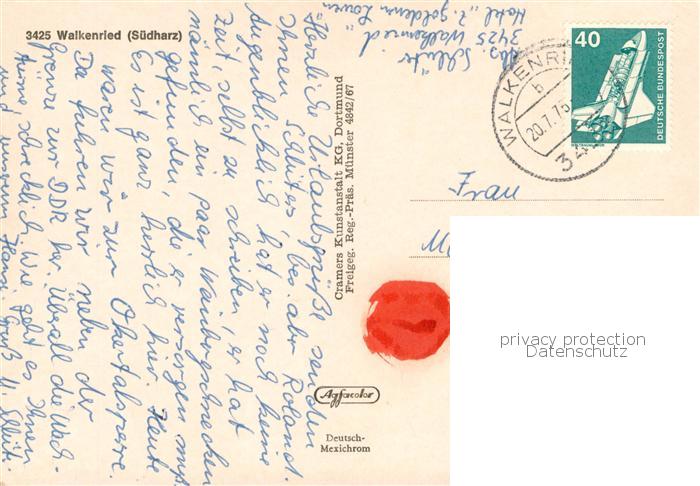 3425 Walkenried (Südharz)
Abs. Schlüter
3425 Walkenried
Hotel „Z. goldenen Löwen
40
DEUTSCHE BUNDESPOST
WALKENRI
b
20.7.75
34
Frau
M
privacy protection
Datenschutz
Cramers Kunstanstalt KG, Dortmund
Freigeg. Reg.-Präs. Münster 4842/67
Agfacolor
Deutsch-
Mexichrom
Herzliche Urlaubsgrüße senden
Ihnen Schlüters, bes. aber Roland.
Augenblicklich hat er noch keine
Zeit selbst zu schreiben, er hat
nämlich ein paar Weinbergschnecken
gefunden, die er versorgen muß.
Es ist ganz herrlich hier. Heute
waren wir zur Okertalsperre.
Da fuhren wir neben der
Grenze zur DDR her. Überall die Wach-
türme, schrecklich. Wie geht es Ihnen
und unserem Hansi. Gruß U. Schlüt.